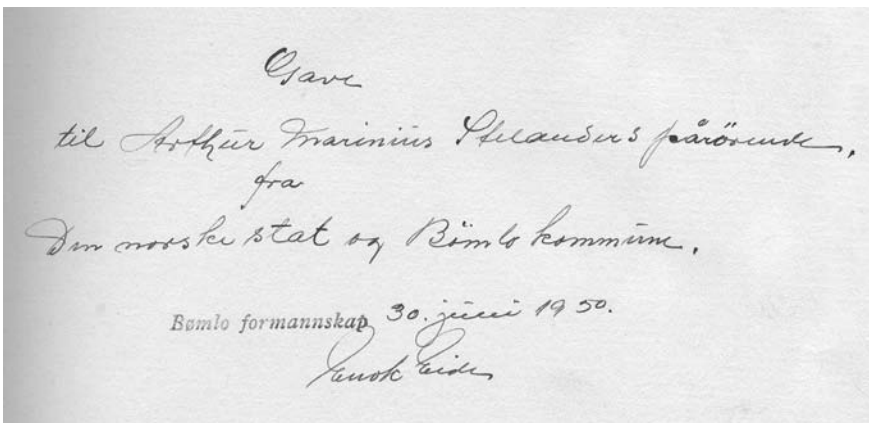 Gave
til Arthur Marinius Stelanders pårørende.
fra
Den norske stat og Bømlo kommune.
Bømlo formannskap 30. juni 1950.
Enok Eide